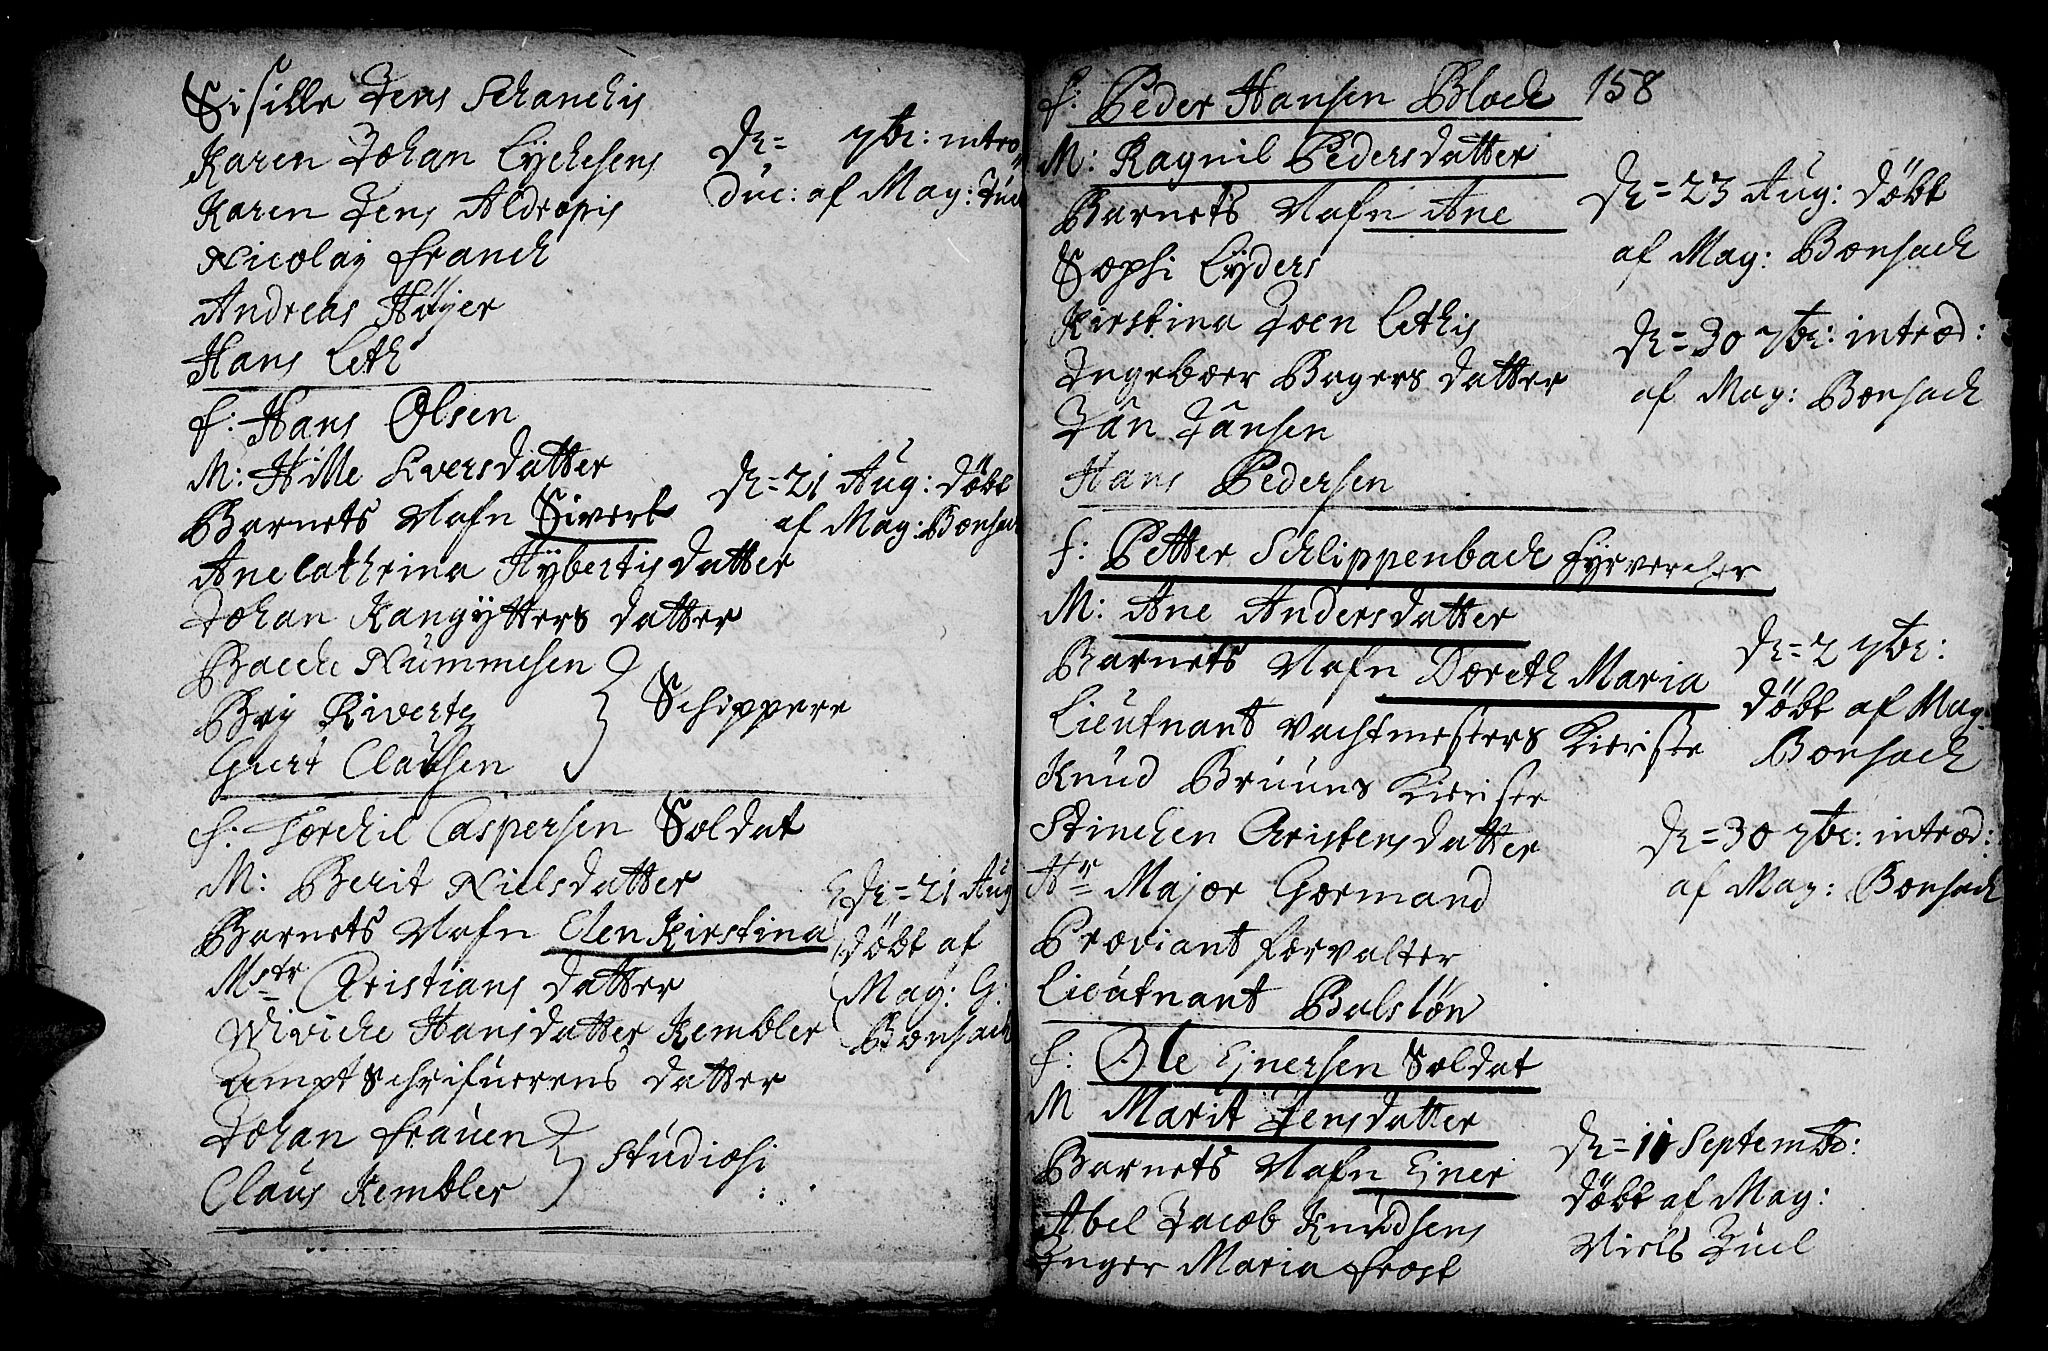 Sisille Jens Schanchis
Karen Johan Lychesens
Karen Jens Aldropis
Nicolay Franck
Andreas Höyer
Hans Leth
D = 7br: intro
duc: af Mag: Juel
f: Hans Olsen
M: Hille Iversdatter
Barnets Nafn Sivert
Ane Cathrina Hybertis datter
Johan Kangÿtters datter
Baecke Nummesen
Boy Siverts
Giert Clausen
Schippere
D = 21 Aug: döbt
af Mag: Bonsach
f: Torchil Caspersen Soldat
M: Berit Nielsdatter
Barnets Nafn Elen Kirstina
Mstr Cristians datter
Wiviche Hansdatter Kembler
Ampt Schrifuerens datter
Johan Frauen
Claus Kembler
Studiosi
D = 21 Aug
döbt af
Mag: G:
Bonsach
158
f: Peder Hansen Block
M: Ragnil Pedersdatter
Barnets Nafn Ane
Sophi Lyders
Kirstina Joen Lethis
Ingeboer Bagers datter
Jan Jansen
Hans Pedersen
D = 23 Aug: döbt
af Mag: Bonsach
D = 30 7br: introd:
af Mag: Bonsach
f: Petter Schlippenbach fyrvercher
M: Ane Andersdatter
Barnets Nafn Doreth Maria
Lieutnant Vachtmesters Kieriste
Knud Bruuns Kieriste
Stinchen Cristensdatter
Hr Major Gormand
Proviant forvalter
Lieutnant Balslöw
D = 2 7br:
döbt af Mag
Bonsach
D = 30 7br: introd:
af Mag: Bonsach
f: Ole Ejnersen Soldat
M Marit Jensdatter
Barnets Nafn Ejner
Abel Jacob Knudsens
Inger Maria Frost
D = 11 Septembr:
döbt af Mag:
Niels Juel